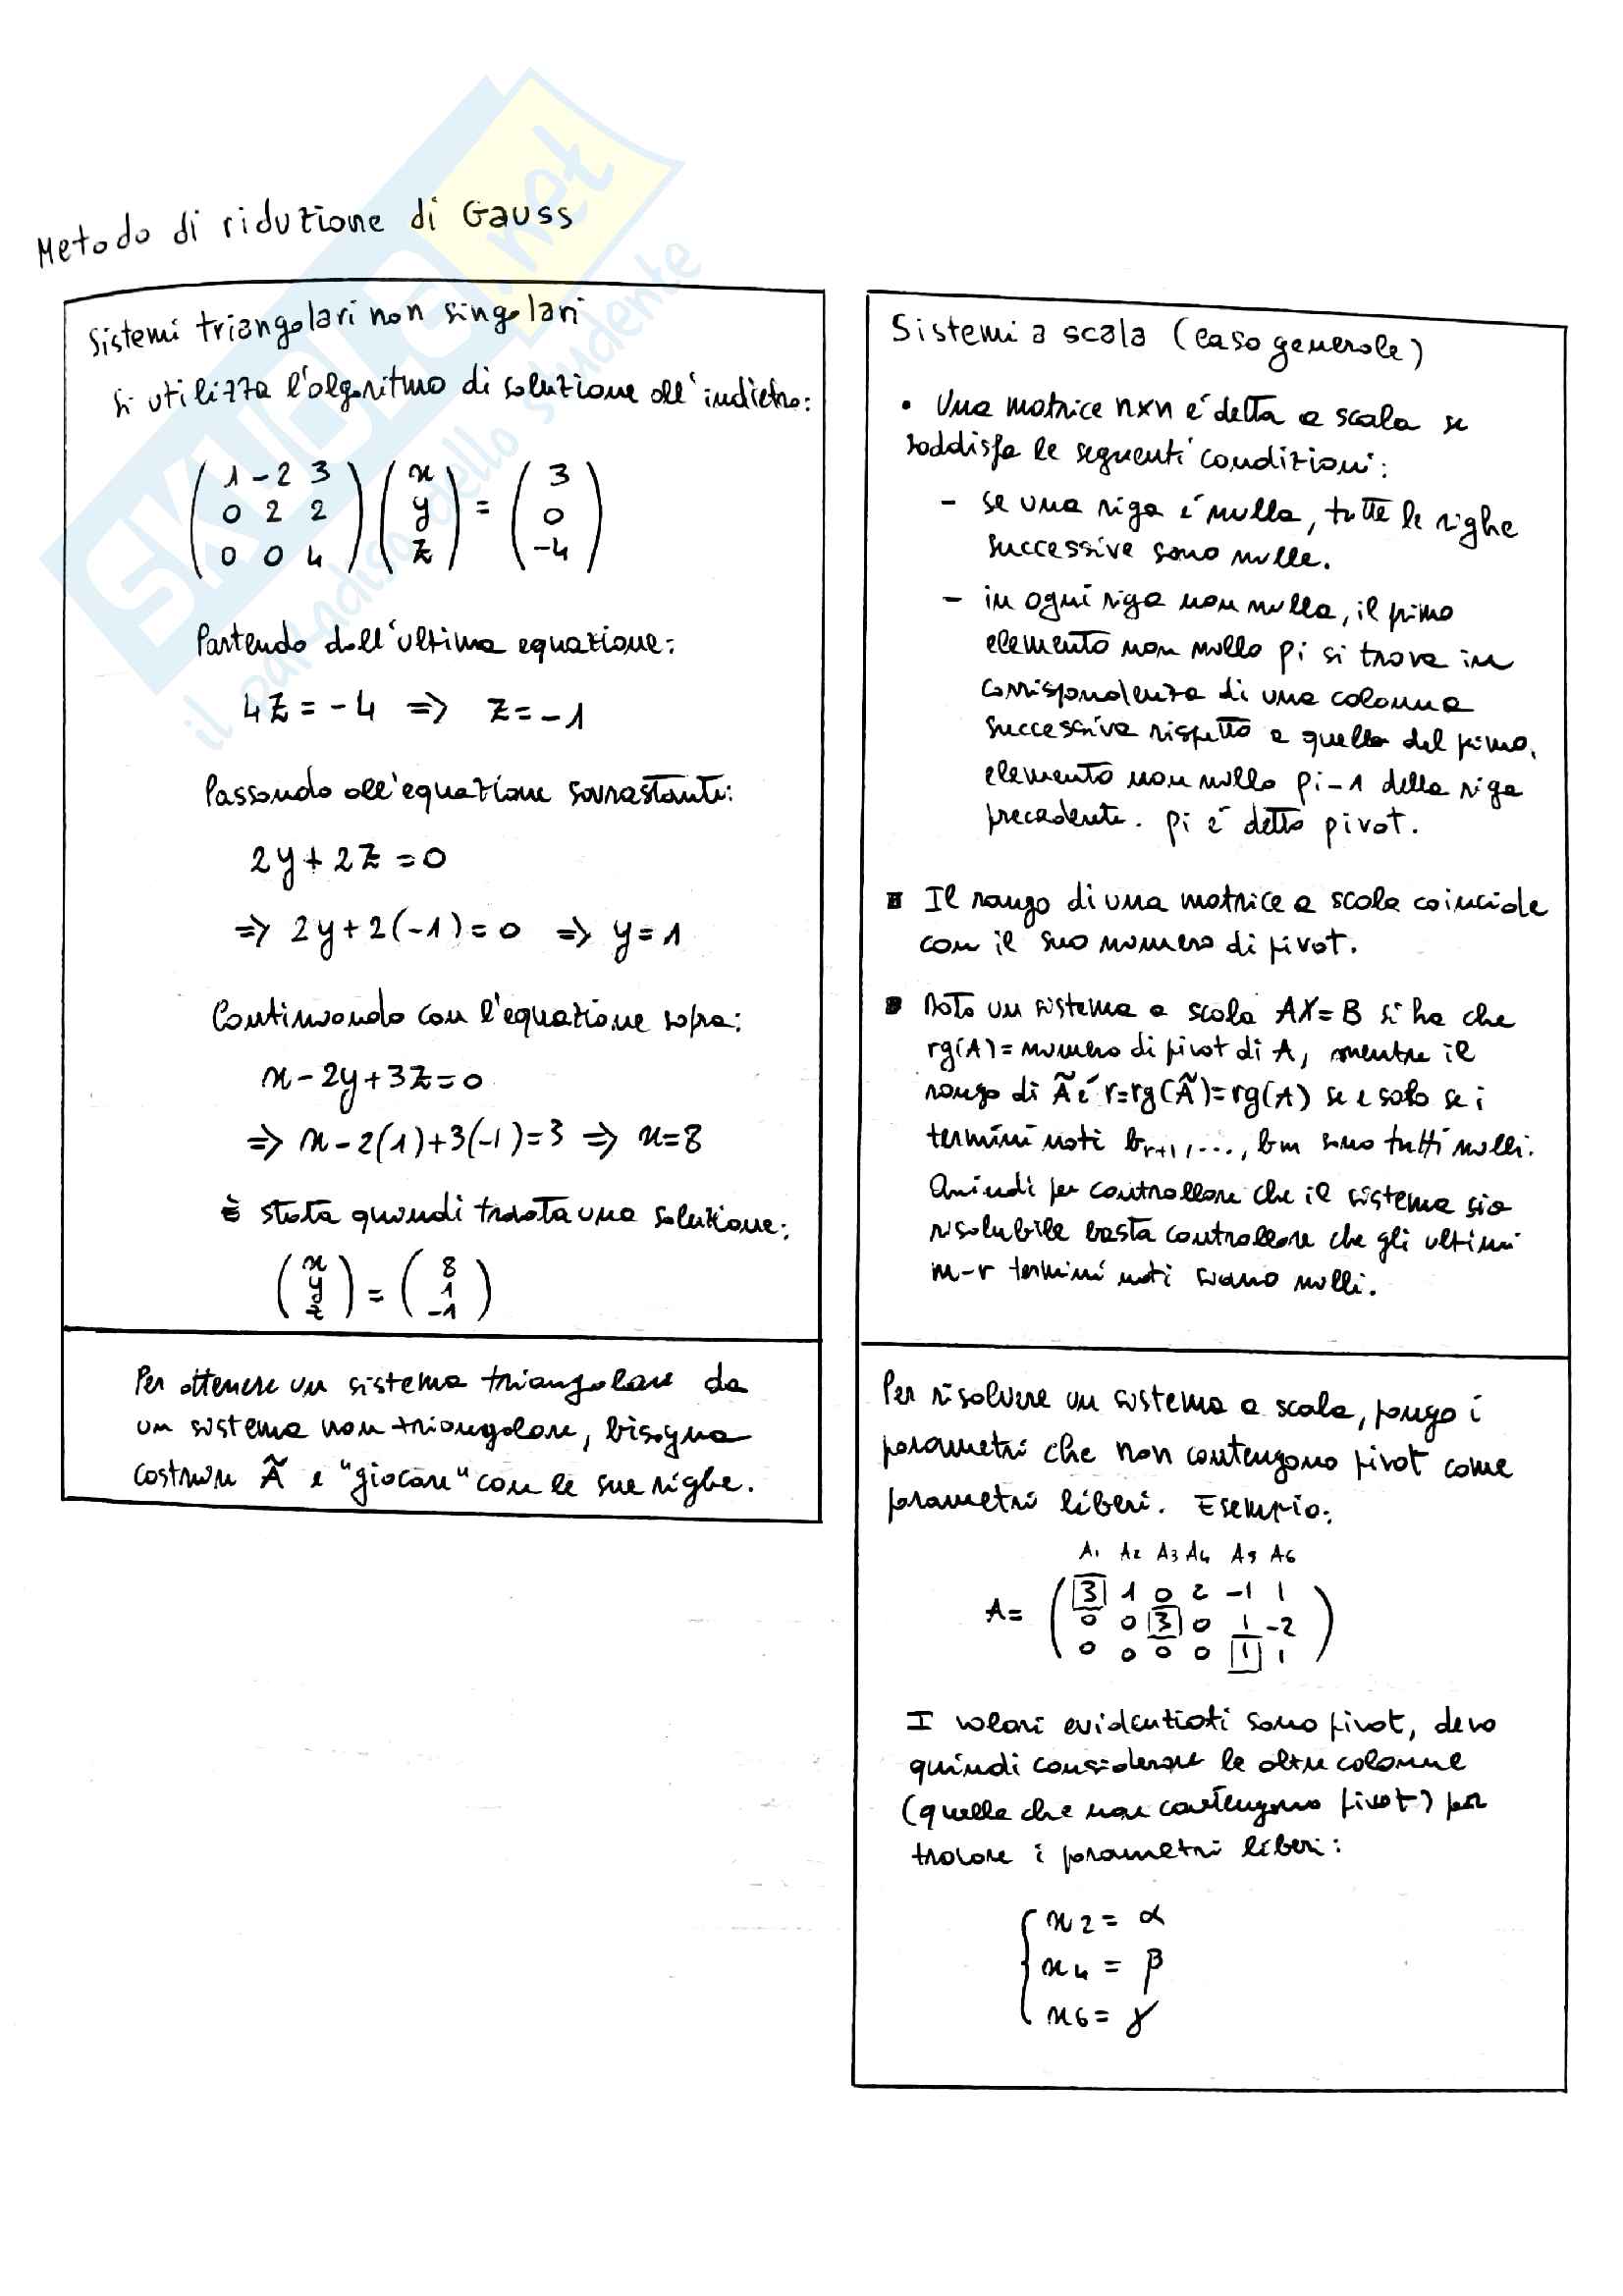 Metodo di riduzione di Gauss
Sistemi triangolari non singolari
Si utilizza l'algoritmo di soluzione all'indietro:
( 1 -2 3 ) ( x ) = ( 3 )
( 0 2 2 ) ( y ) ( 0 )
( 0 0 4 ) ( z ) ( -4 )
Partendo dall'ultima equazione:
4z = -4 => z = -1
Passando all'equazione sovrastante:
2y + 2z = 0
=> 2y + 2(-1) = 0 => y = 1
Continuando con l'equazione sopra:
x - 2y + 3z = 0
=> x - 2(1) + 3(-1) = 3 => x = 8
è stata quindi trovata una soluzione:
( x ) = ( 8 )
( y ) ( 1 )
( z ) ( -1 )
Per ottenere un sistema triangolare da
un sistema non triangolare, bisogna
costruire Ã e "giocare" con le sue righe.
Sistemi a scala (caso generale)
• Una matrice n×n è detta a scala se
soddisfa le seguenti condizioni:
- se una riga è nulla, tutte le righe
successive sono nulle.
- in ogni riga non nulla, il primo
elemento non nullo pi si trova in
corrispondenza di una colonna
successiva rispetto a quella del primo
elemento non nullo pi-1 della riga
precedente. pi è detto pivot.
▪ Il rango di una matrice a scala coincide
con il suo numero di pivot.
▪ Dato un sistema a scala AX = B si ha che
rg(A) = numero di pivot di A, mentre il
rango di Ã è r = rg(Ã) = rg(A) se e solo se i
termini noti br+1, ..., bm sono tutti nulli.
Quindi per controllare che il sistema sia
risolubile basta controllare che gli ultimi
m-r termini noti siano nulli.
Per risolvere un sistema a scala, pongo i
parametri che non contengono pivot come
parametri liberi. Esempio:
A1 A2 A3 A4 A5 A6
A = ( 3 1 0 2 -1 1 )
( 0 0 3 0 1 -2 )
( 0 0 0 0 1 1 )
I valori evidenziati sono pivot, devo
quindi considerare le altre colonne
(quelle che non contengono pivot) per
trovare i parametri liberi:
{ x2 = α
x4 = β
x6 = γ
SKUOLA.net
il paradiso dello studente